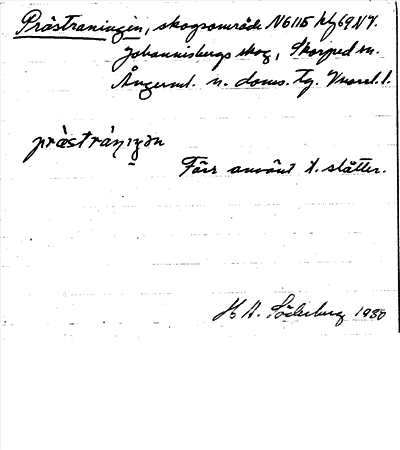 Prästraningen, skogsområde N6115 kbf 69 NV.
Johannisbergs skog, Skorped sn.
Ångerml. n. doms. tg. Vnorrl. l.
præstràn̩ɪŋən
Förr använt t. slåtter.
H A. Söderberg 1930